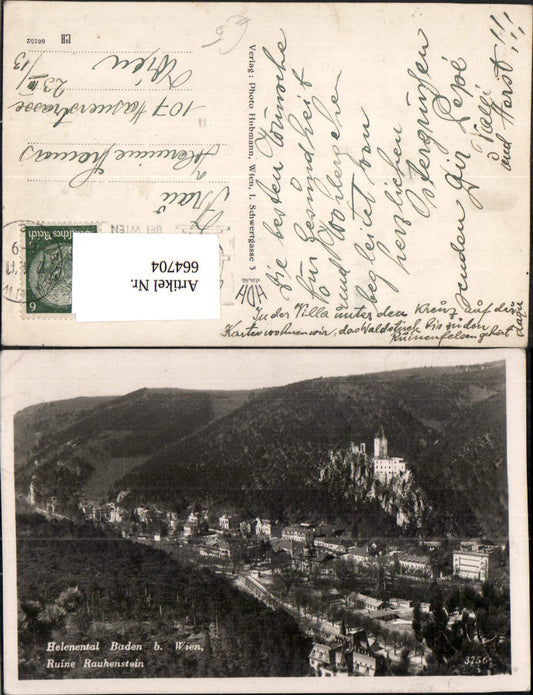 Die besten Wünsche
für Gesundheit
und Wohlergehen
begleitet von
herzlichen
Ostergrüßen
senden Dir Pepi
und Horst!!!
In der Villa unter dem Kreuz auf der
Karte wohnen wir, das Waldstück bis zu den
Ruinenfelsen gehört
dazu
Verlag: Photo Hubmann, Wien, I. Schwertgasse 3
HDH
VERLAG
Frau
Hermine
107 Hasnerstrasse
Wien
66232
BEI WIEN
Deutsches Reich
6
Artikel Nr.
664704
Helenental Baden b. Wien,
Ruine Rauhenstein
3756